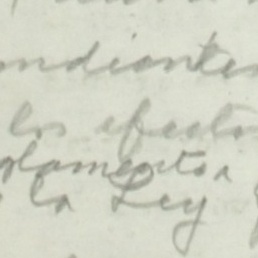 ndiante
los efectos
glamento,
la Ley